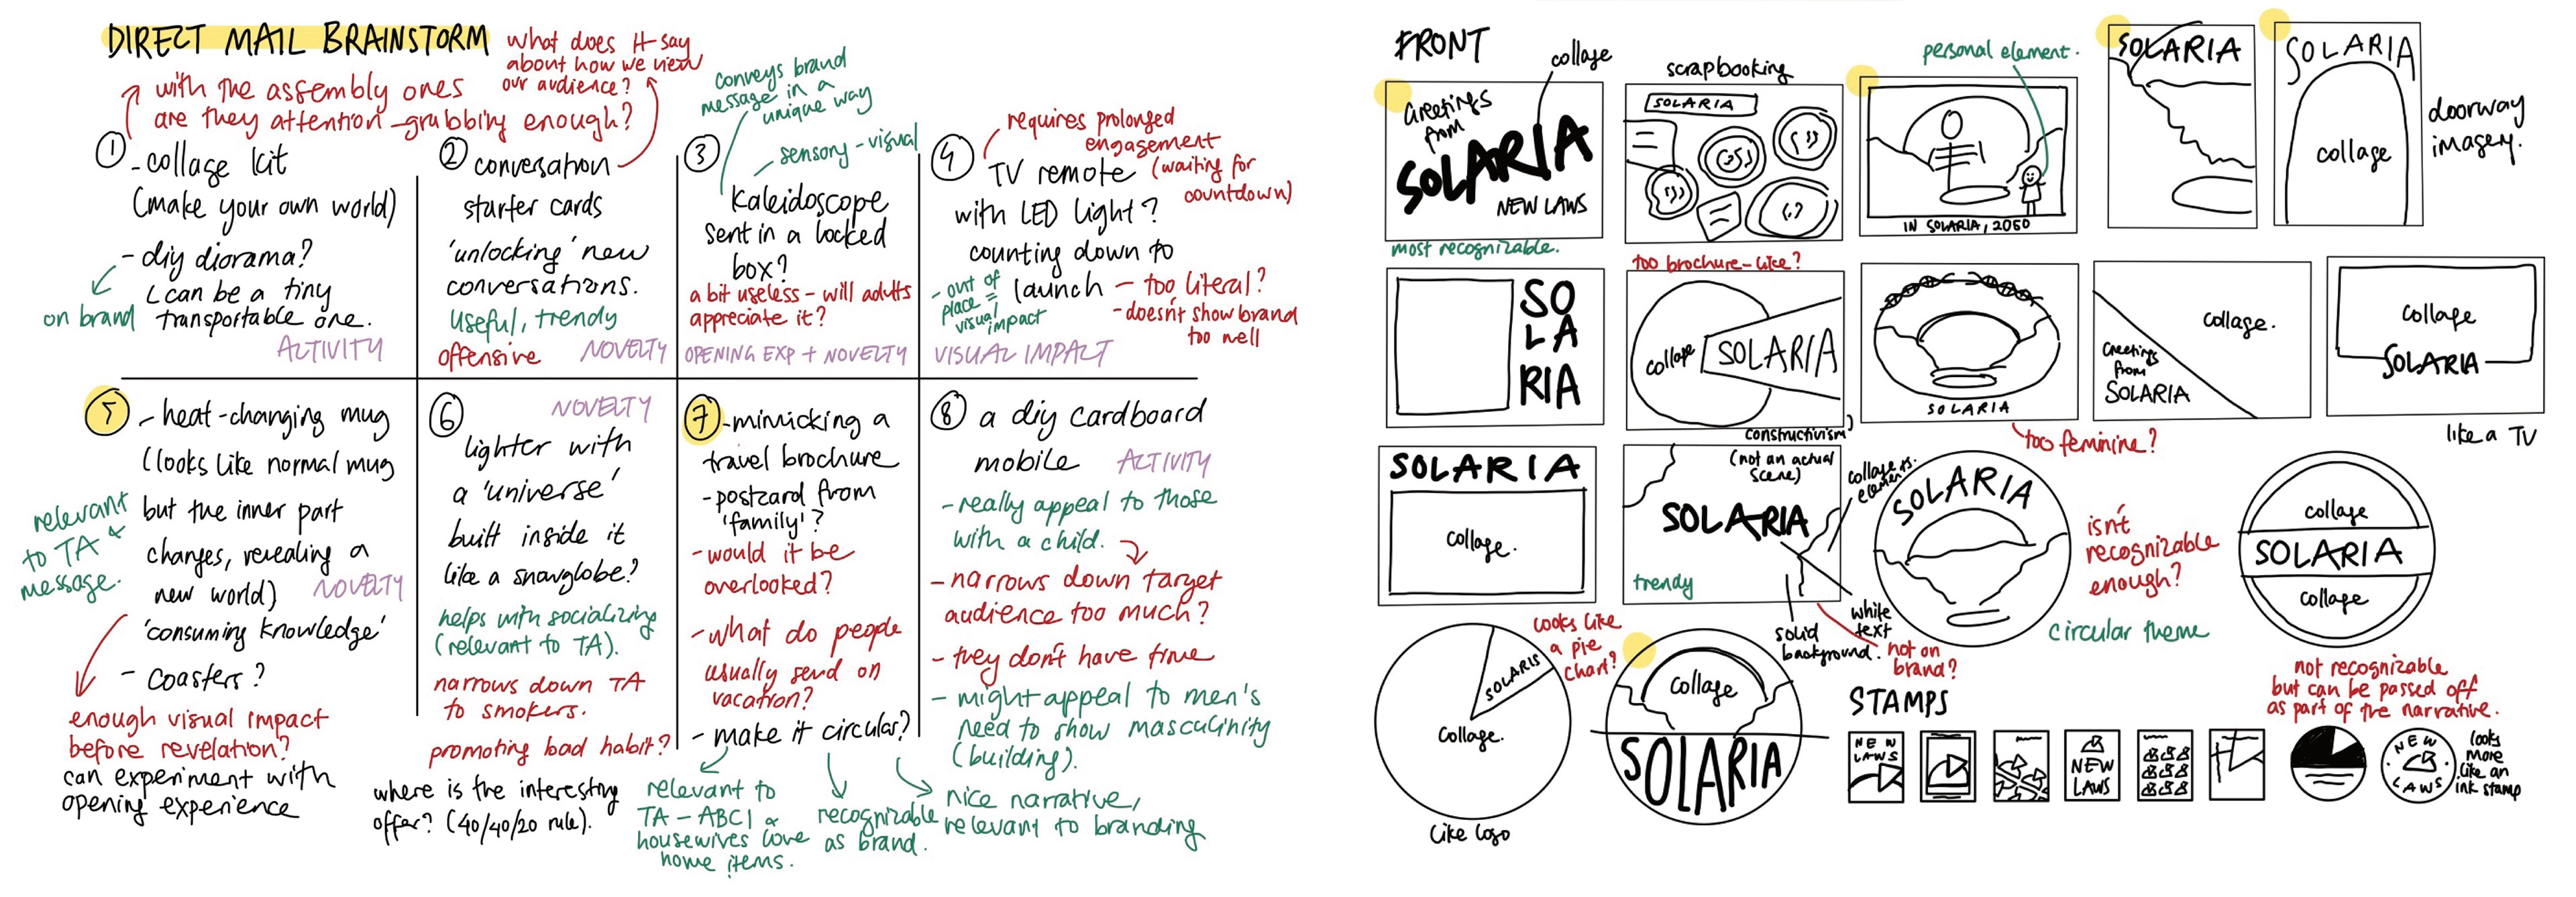 DIRECT MAIL BRAINSTORM
with the assembly ones
are they attention-grubbing enough?
what does it say
about how we view
our audience?
①
-collage kit
(make your own world)
- diy diorama?
can be a tiny
transportable one.
on brand
ACTIVITY
②
conversation
starter cards
'unlocking' new
conversations.
useful, trendy
offensive
NOVELTY
conveys brand
message in a
unique way
sensory - visual
③
Kaleidoscope
sent in a locked
box?
a bit useless - will adults
appreciate it?
OPENING EXP + NOVELTY
requires prolonged
engagement
(waiting for
countdown)
④
TV remote
with LED light?
counting down to
launch
- out of
place =
visual
impact
- too literal?
- doesn't show brand
too well
VISUAL IMPACT
5
- heat-changing mug
(looks like normal mug
but the inner part
changes, revealing a
new world)
NOVELTY
'consuming knowledge'
- coasters?
relevant
to TA &
message.
enough visual impact
before revelation?
can experiment with
opening experience
⑥
NOVELTY
lighter with
a 'universe'
built inside it
like a snowglobe?
helps with socializing
(relevant to TA).
narrows down TA
to smokers.
promoting bad habit?
where is the interesting
offer? (40/40/20 rule).
⑦
-mimicking a
travel brochure
-postcard from
'family'?
- would it be
overlooked?
- what do people
usually send on
vacation?
- make it circular?
relevant to
TA - ABC1 &
housewives love
home items.
recognizable
as brand.
nice narrative,
relevant to branding
⑧
a diy cardboard
mobile
ACTIVITY
- really appeal to those
with a child.
- narrows down target
audience too much?
- they don't have time
- might appeal to men's
need to show masculinity
(building).
FRONT
collage
Greetings
from
SOLARIA
NEW LAWS
most recognizable.
scrapbooking
SOLARIA
too brochure-like?
personal element.
IN SOLARIA, 2050
SOLARIA
SOLARIA
collage
doorway
imagery.
SO
LA
RIA
collage
SOLARIA
constructivism
SOLARIA
too feminine?
collage.
Greetings
from
SOLARIA
collage
SOLARIA
like a TV
SOLARIA
collage.
(not an actual
scene)
SOLARIA
trendy
collage as
element
solid
background.
white
text
not on
brand?
SOLARIA
isn't
recognizable
enough?
circular theme
collage
SOLARIA
collage
not recognizable
but can be passed off
as part of the narrative.
SOLARIS
collage.
looks like
a pie
chart?
like logo
collage
SOLARIA
STAMPS
NEW
LAWS
NEW
LAWS
NEW
LAWS
looks
more
like an
ink stamp